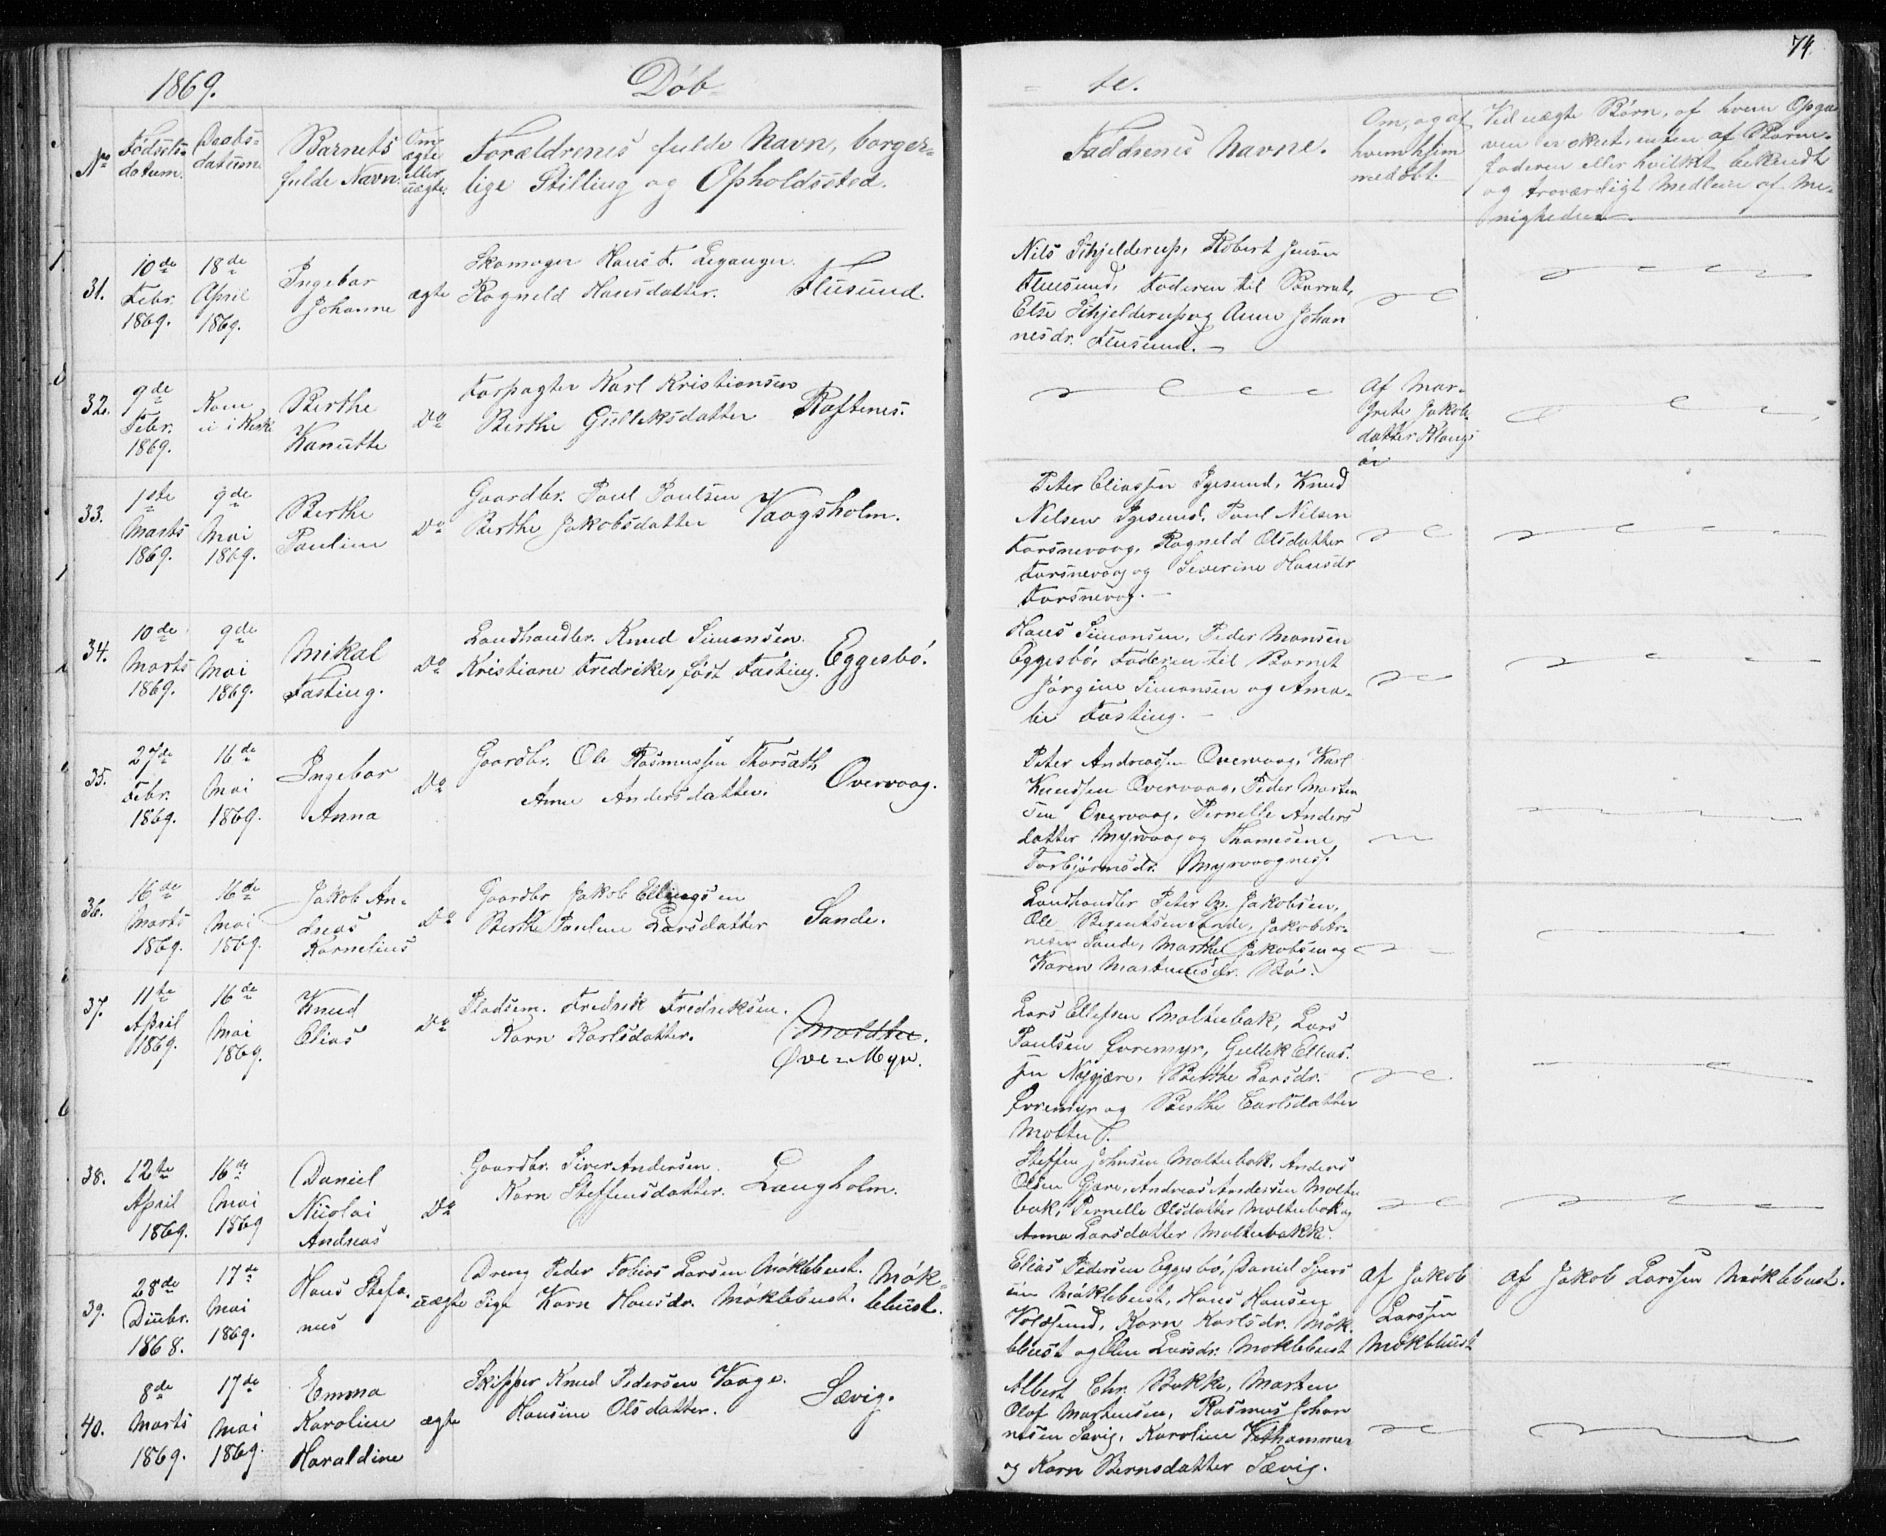 1869.
Døb-
te.
74.
No
Fødsels-
datum.
Daabs-
datum.
Barnets
fulde Navn.
Om
ægte
eller
uægte.
Forældrenes fulde Navn, borger-
lige Stilling og Opholdssted.
Faddrenes Navne.
Om, og af
hvem hjem
medøbt.
Ved uægte Børn, af hvem Opga
ven er skeet, enten af Barne-
faderen eller hvilket bekendt
og troværdigt Medlem af Me-
nigheden.
31.
10de
Febr.
1869.
18de
April
1869.
Ingebor
Johanne
ægte
Skomager Hans F. Leganger.
Ragneld Hansdatter.
Flusund.
Nils Schjelderup, Robert Jensen
Flusund, Faderen til Barnet,
Else Schjelderup og Anne Johan
nesdr. Flusund.
32.
9de
Febr.
1869.
Kom
ei i Kirke
Berthe
Kanutte
Do
Forpagter Karl Kristiansen
Berthe Gulleksdatter
Raftenes.
af Mar-
grete Jakob
datter
33.
1ste
Marts
1869.
9de
Mai
1869.
Berthe
Pauline
Do
Gaardbr. Paul Paulsen
Berthe Jakobsdatter
Vaagsholm.
Peter Eliassen Igesund, Knud
Nilsen Igesund, Paul Nilsen
Torsnevaag, Ragneld Olsdatter
Torsnevaag og Severine Hansdr
Torsnevag.
34.
10de
Marts
1869.
9de
Mai
1869.
Mikal
Fasting.
Do
Landhandler. Knud Simonsen.
Kristiane Fredrikke, født Fasting.
Eggesbö.
Hans Simonsen, Peder Monsen
Eggesbö, Faderen til Barnet
Jørgine Simonsen og Ama-
lie Fasting.
35.
27de
Febr.
1869.
16de
Mai
1869.
Ingebor
Anna
Do
Gaardbr. Ole Rasmussen Thorsæth
Anne Andersdatter.
Overvaag.
Peter Andreassen Overvaag, Karl
Knudsen Overvaag, Peder Morten
sen Overvaag, Pernelle Anders
datter Myrvaag og Thomesene
Torbjørnsdr. Myrvaagnes.
36.
16de
Marts
1869.
16de
Mai
1869.
Jakob An-
dreas
Kornelius
Do
Gaardbr Jakob Ellingsen
Berthe Pauline Larsdatter
Sande.
Landhandler Peter Jakobsen,
Ole Berentsen Sande, Jakob Ar-
nesen Sande, Marthe Jakobsen og
Karen Martinusdr. Bö.
37.
11te
April
1869.
16de
Mai
1869.
Knud
Elias
Do
Pladsm. Fredrik Fredriksen.
Karn Karlsdatter.
Moldtu.
Øvre-Myr.
Lars Ellefsen Moltubak, Lars
Paulsen Øvremyr, Gullek Elias-
sen Nygjære, Berthe Larsdr.
Øvremyr og Berthe Carlsdatter
Moltu.
38.
12te
April
1869.
16de
Mai
1869
Daniel
Nicolai
Andreas
Do
Gaardbr. Siver Andersen.
Karn Steffensdatter.
Langholm.
Steffen Johnsen Moltubak, Anders
Olsen Gjære, Andreas Andersen Moltu
bak, Pernelle Olsdatter Moltubak og
Anna Larsdatter Moltubakke.
39.
28de
Decbr.
1868.
17de
Mai
1869.
Hans Stefa-
nus
uægte
Dreng Peder Tobias Larsen Møklebust.
Pige Karn Hansdr. Møklebust.
Møk-
lebust.
Elias Pedersen Eggesbö, Daniel Ivers
sen Møklebust, Hans Hansen
Voldsund, Karn Karlsdr. Møk-
lebust og Oline Larsdr. Møklebust
af Jakob
Larssen
Møklebust
af Jakob Larssen Møklebust.
40.
8de
Marts
1869.
17de
Mai
1869.
Emma
Karoline
Haraldine
ægte
Skipper Knud Pedersen Vaage.
Hansine Olsdatter.
Sævig.
Albert Chr. Bakke, Marten
Olaf Martinsen, Rasmus Johan
nesen Sævig, Karoline Vethammer
og Karn Bernsdatter Sævig.